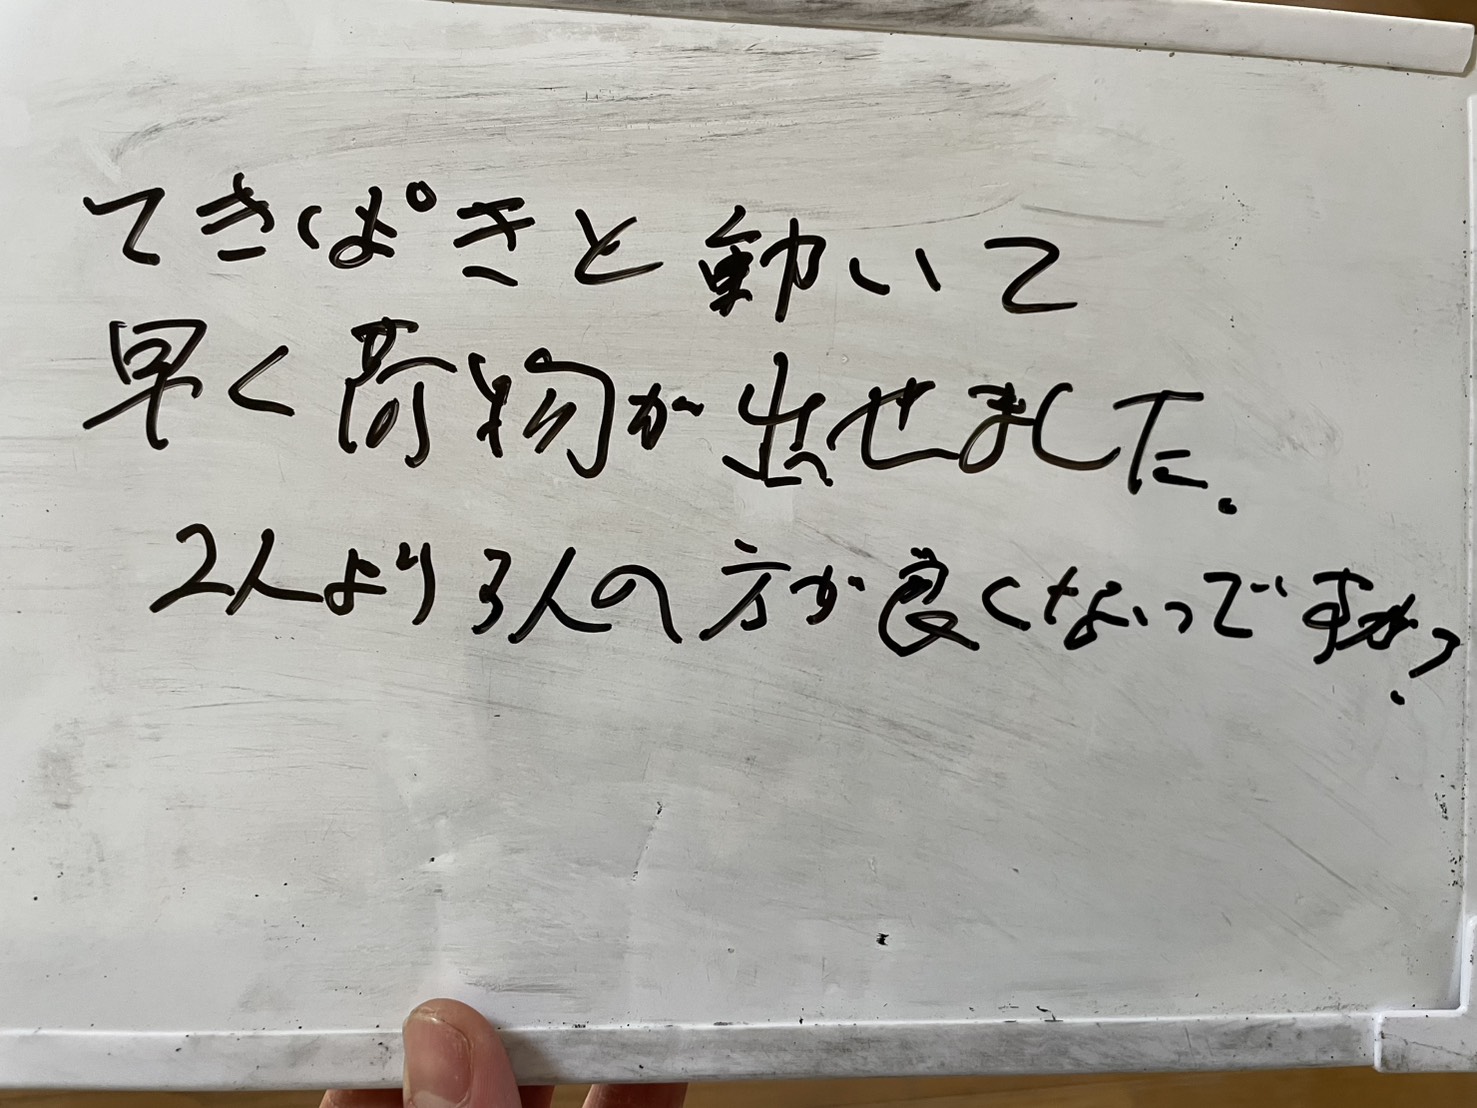 てきぱきと動いて
早く荷物が出せました。
2人より3人の方が良くないっですか?